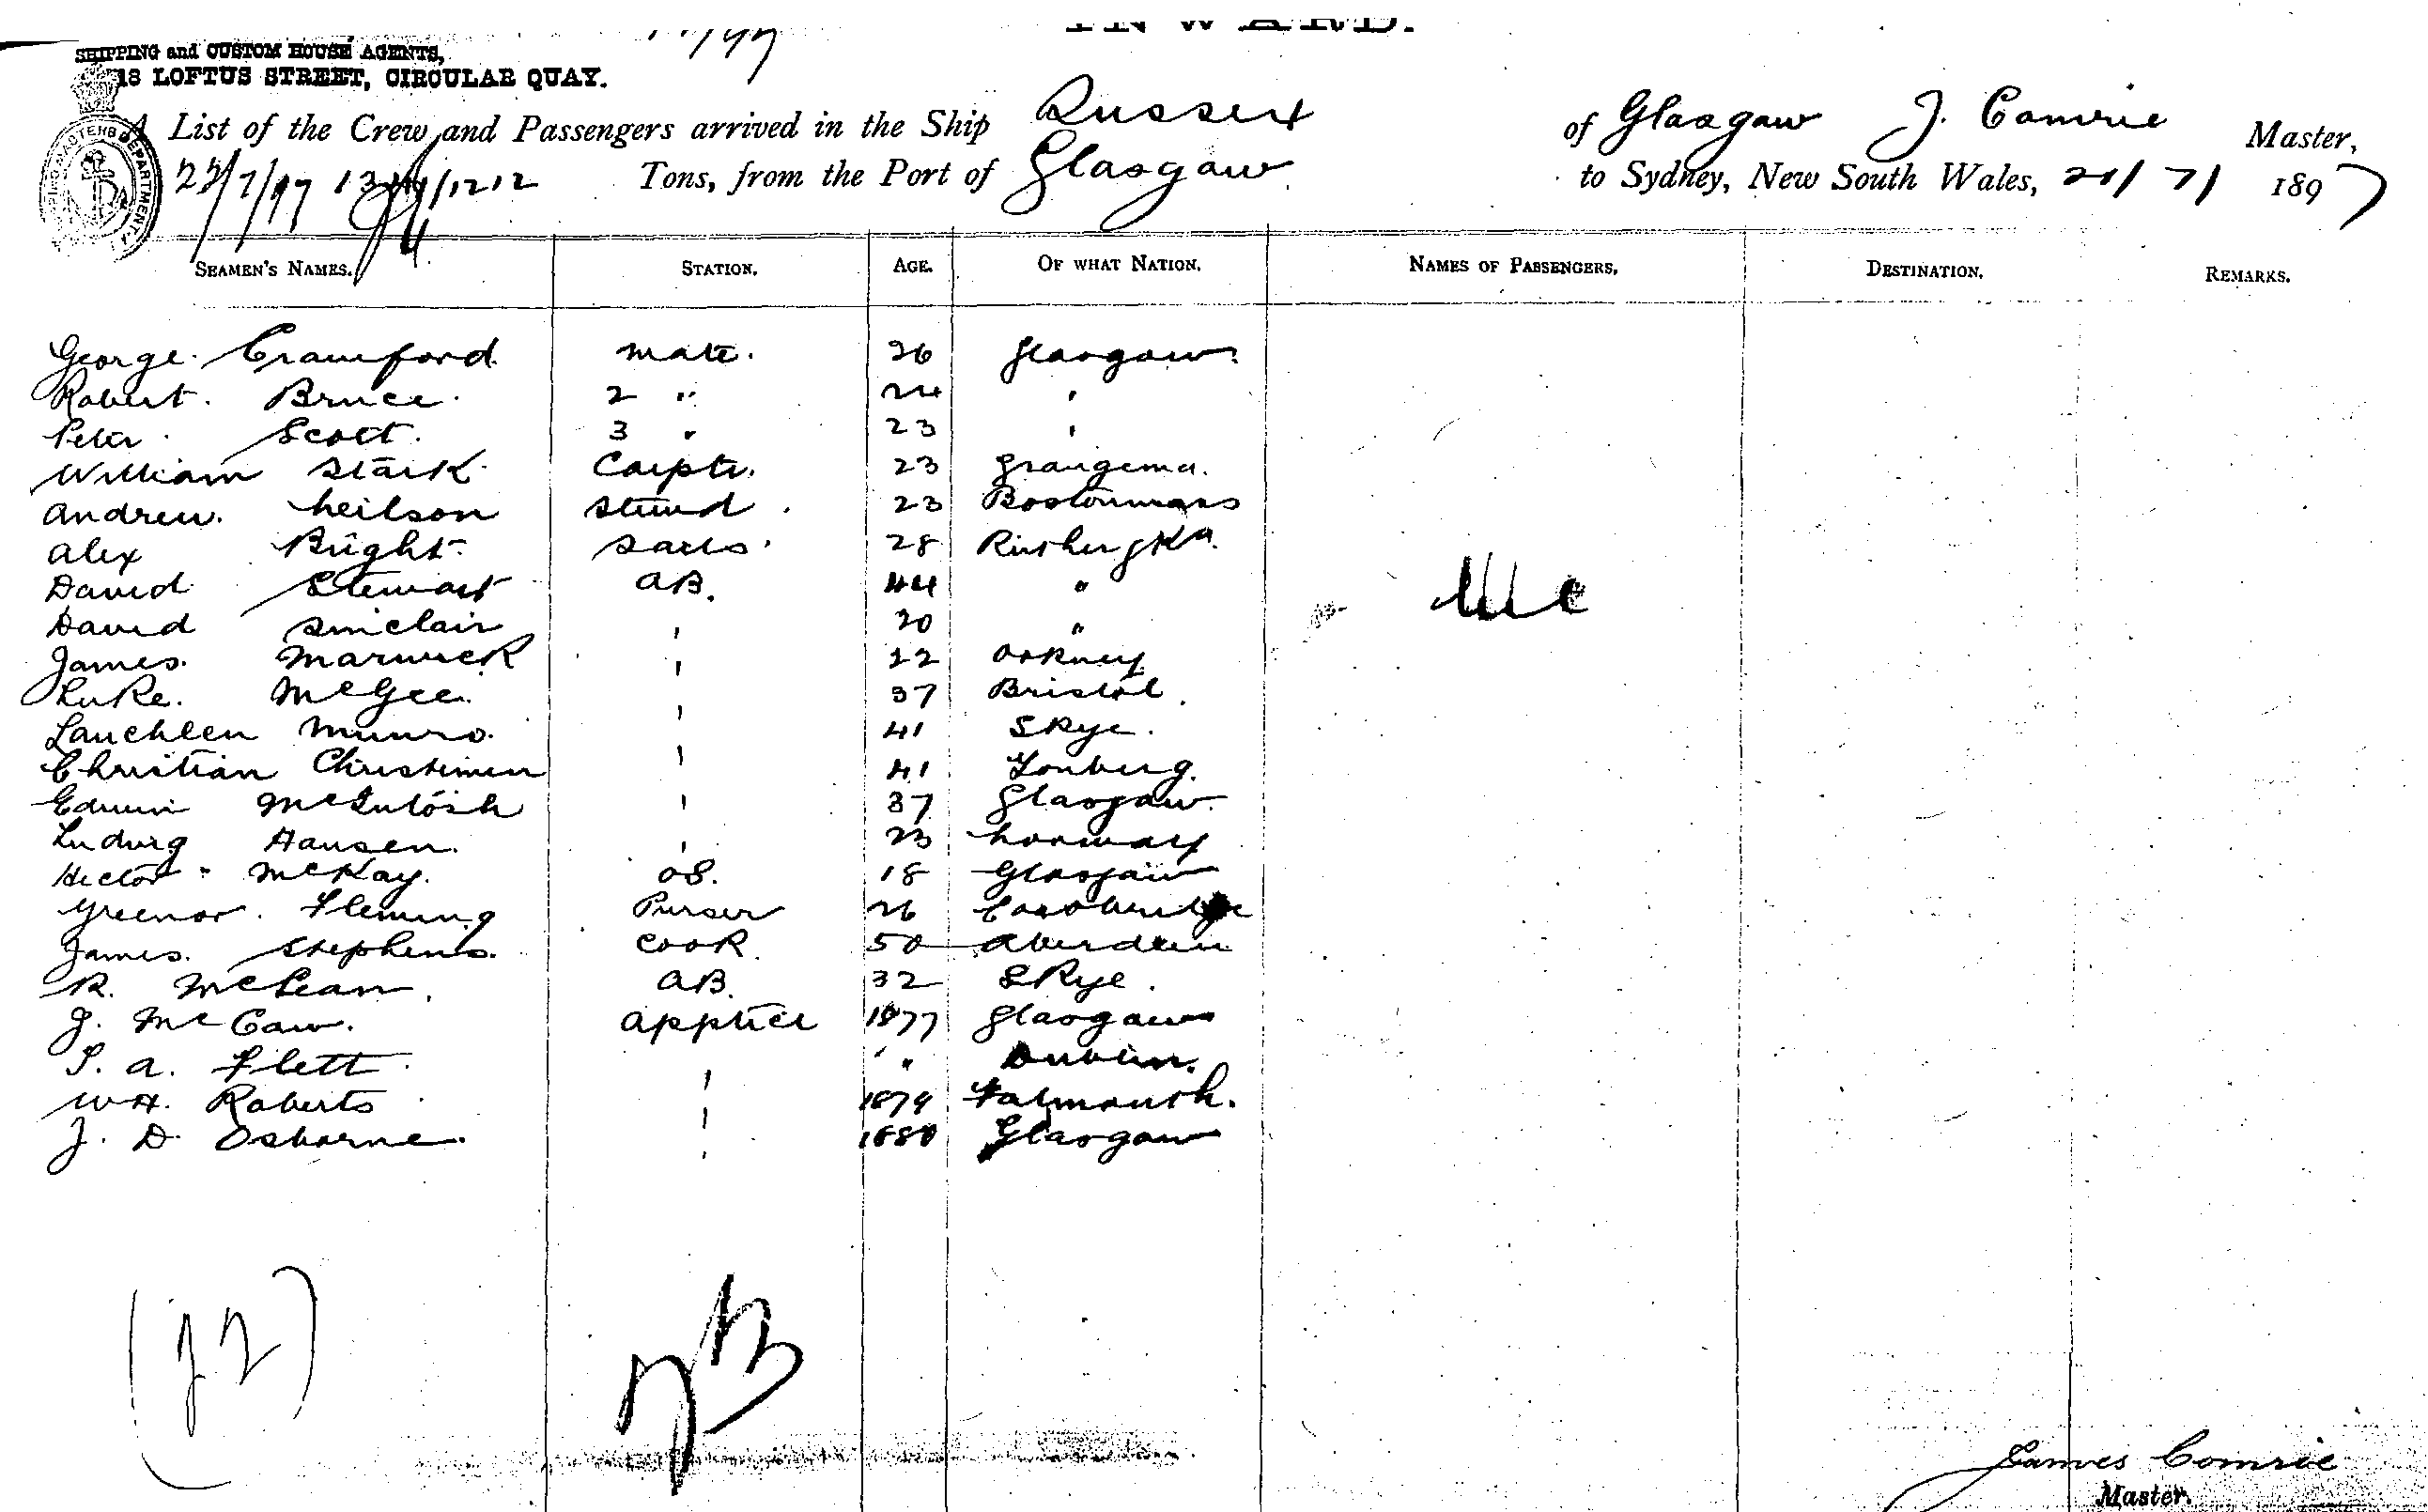 SHIPPING and CUSTOM HOUSE AGENTS,
18 LOFTUS STREET, CIRCULAR QUAY.
A List of the Crew and Passengers arrived in the Ship Sussex of Glasgow J. Comrie Master,
Tons, from the Port of Glasgow to Sydney, New South Wales, 21/7/ 1897
SEAMEN'S NAMES. STATION. AGE. OF WHAT NATION. NAMES OF PASSENGERS. DESTINATION. REMARKS.
George Crawford mate. 26 Glasgow
Robert Bruce 2 " 24 "
Peter Scott 3 " 23 "
William Stark Carptr. 23
Andrew Neilson Stewd 23 Boston mass
Alex Bright Sails 28
David Stewart AB. 44 "
David Sinclair " "
James Marwick " 22 Orkney
Luke McGee " 37 Bristol
Lauchlen Munro " 41 Skye
Christian " 41
Edwin McIntosh " 37 Glasgow
Ludwig Hansen " 23 Norway
Hector McKay OS. 18 Glasgow
Fleming Purser 26 Coatbridge
James Stephens Cook 50 Aberdeen
R. McLean AB. 32 Skye
J. McCaw. Apptice 1877 Glasgow
Flett " " Dublin
W.H. Roberts " 1879 Falmouth.
J. D. Osborne " 1880 Glasgow
(22)
James Comrie
Master.